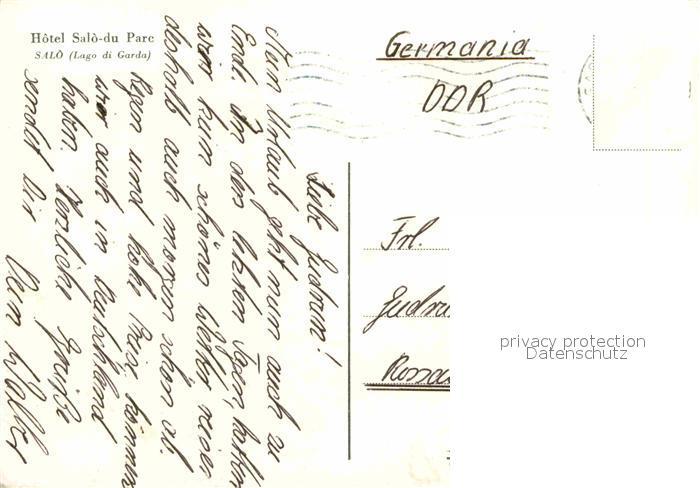 Hôtel Salò-du Parc
SALÒ (Lago di Garda)
Liebe Gudrun!
Mein Urlaub geht nun auch zu
Ende. In den letzten Tagen hatten
wir kein schönes Wetter reisen
deshalb auch morgen schon ab.
Regen und hohe Preise können
wir auch in Deutschland
haben. Herzliche Grüße
sendet Dir Dein Walter
Germania
DDR
Frl.
Gudru
privacy protection
Datenschutz